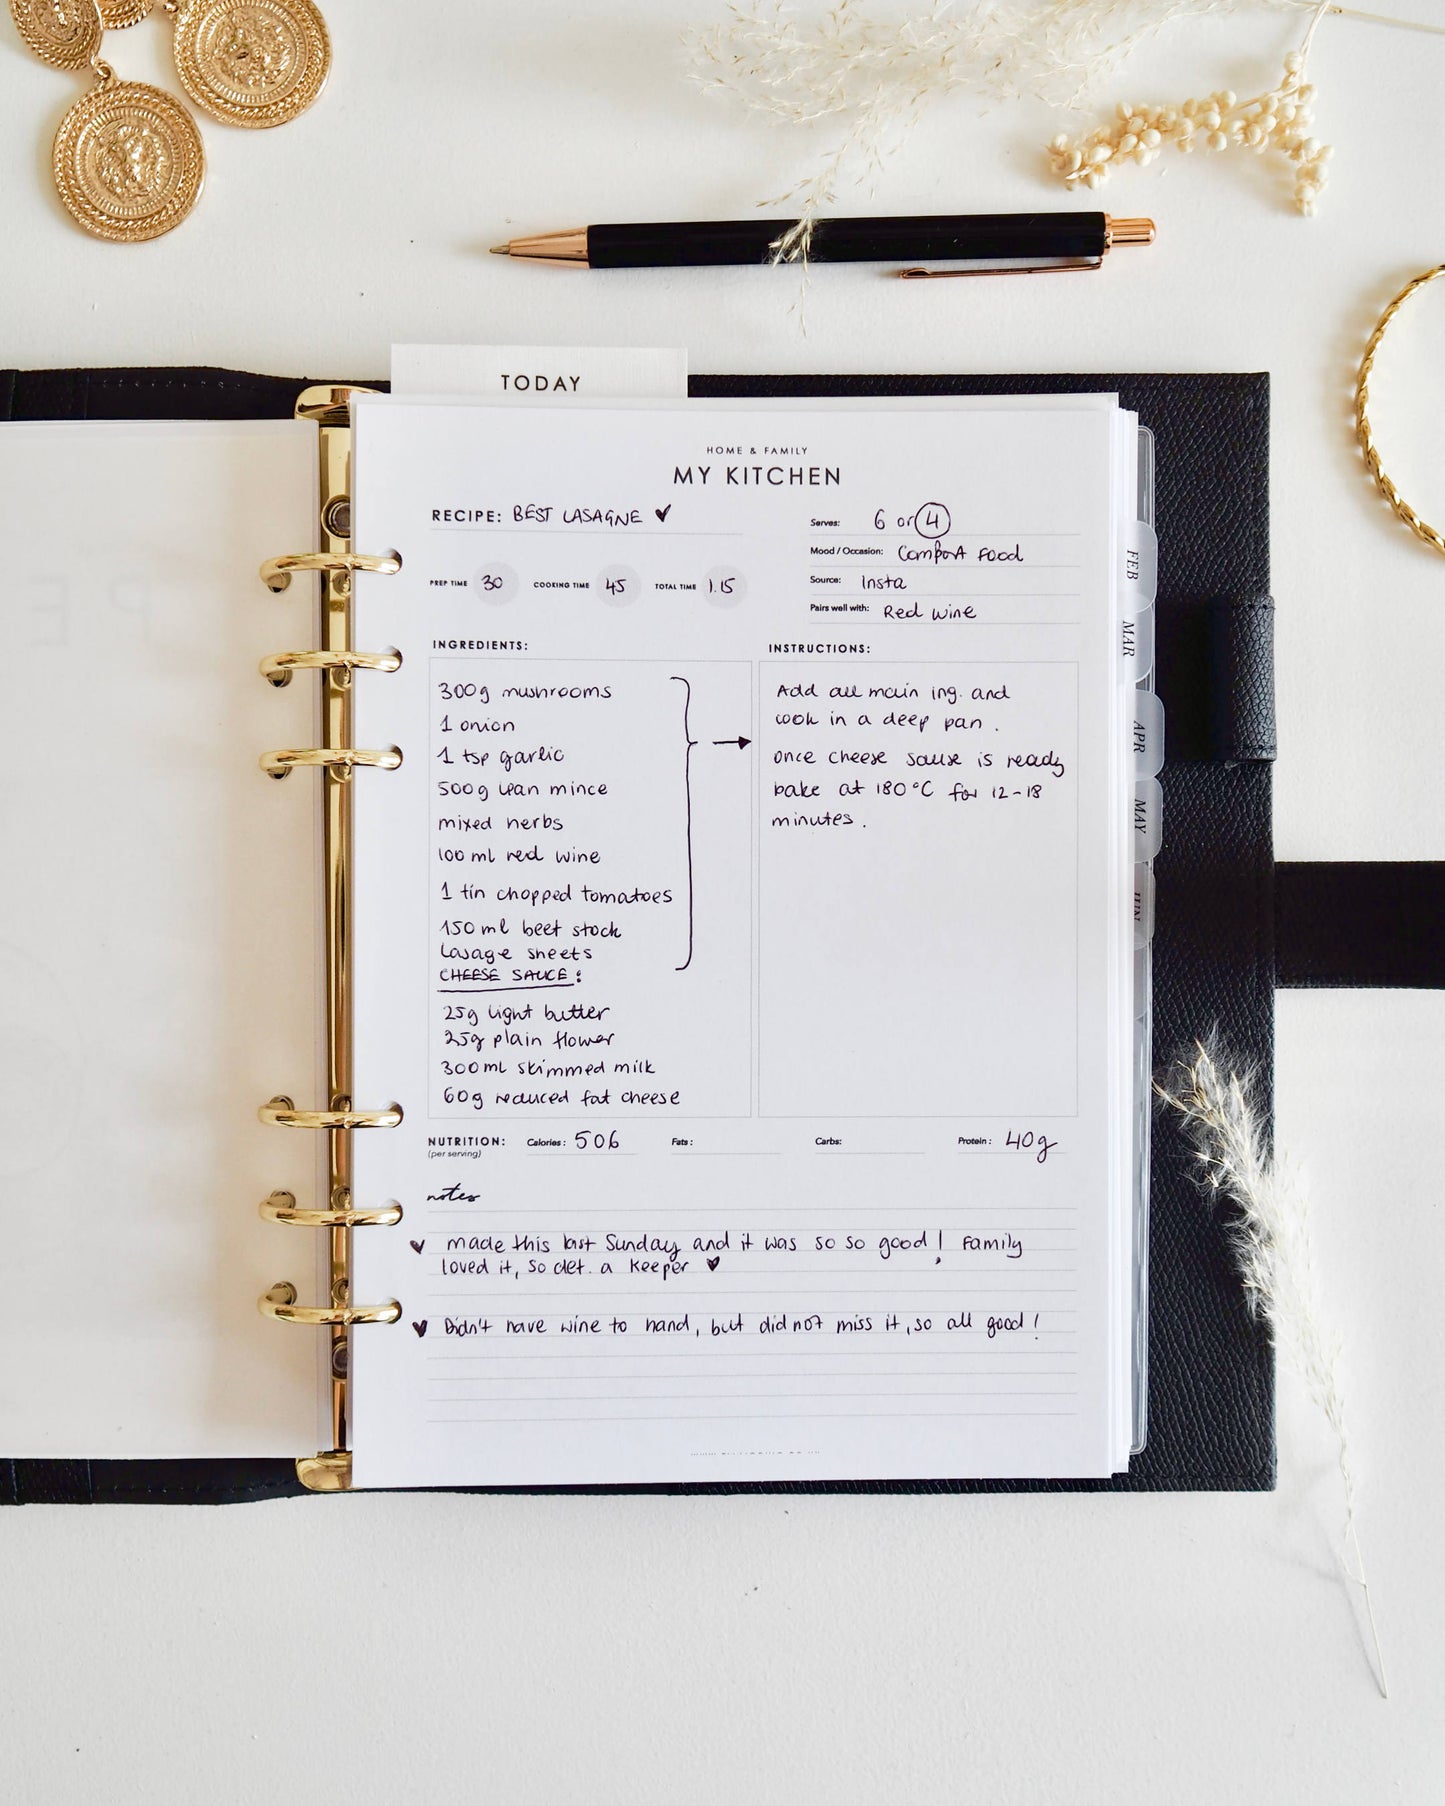 TODAY
HOME & FAMILY
MY KITCHEN
RECIPE: BEST LASAGNE
Serves: 6 or 4
Mood / Occasion: Comfort Food
Source: Insta
Pairs well with: Red wine
PREP TIME 30 COOKING TIME 45 TOTAL TIME 1.15
INGREDIENTS:
300g mushrooms
1 onion
1 tsp garlic
500g lean mince
mixed herbs
100 ml red wine
1 tin chopped tomatoes
150 ml beef stock
Lasage sheets
CHEESE SAUCE:
25g light butter
25g plain flower
300ml skimmed milk
60g reduced fat cheese
INSTRUCTIONS:
Add all main ing. and
cook in a deep pan.
once cheese sause is ready
bake at 180°C for 12-18
minutes.
NUTRITION: Calories: 506 Fats: Carbs: Protein: 40g
(per serving)
notes
made this last Sunday and it was so so good! Family
loved it, so det. a keeper
Didn't have wine to hand, but did not miss it, so all good!
FEB
MAR
APR
MAY
JUN